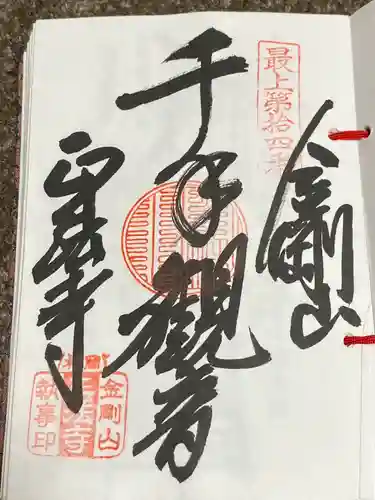 最上第拾四番
金剛山
千手觀音
正法寺
金剛山
正法寺
執事印